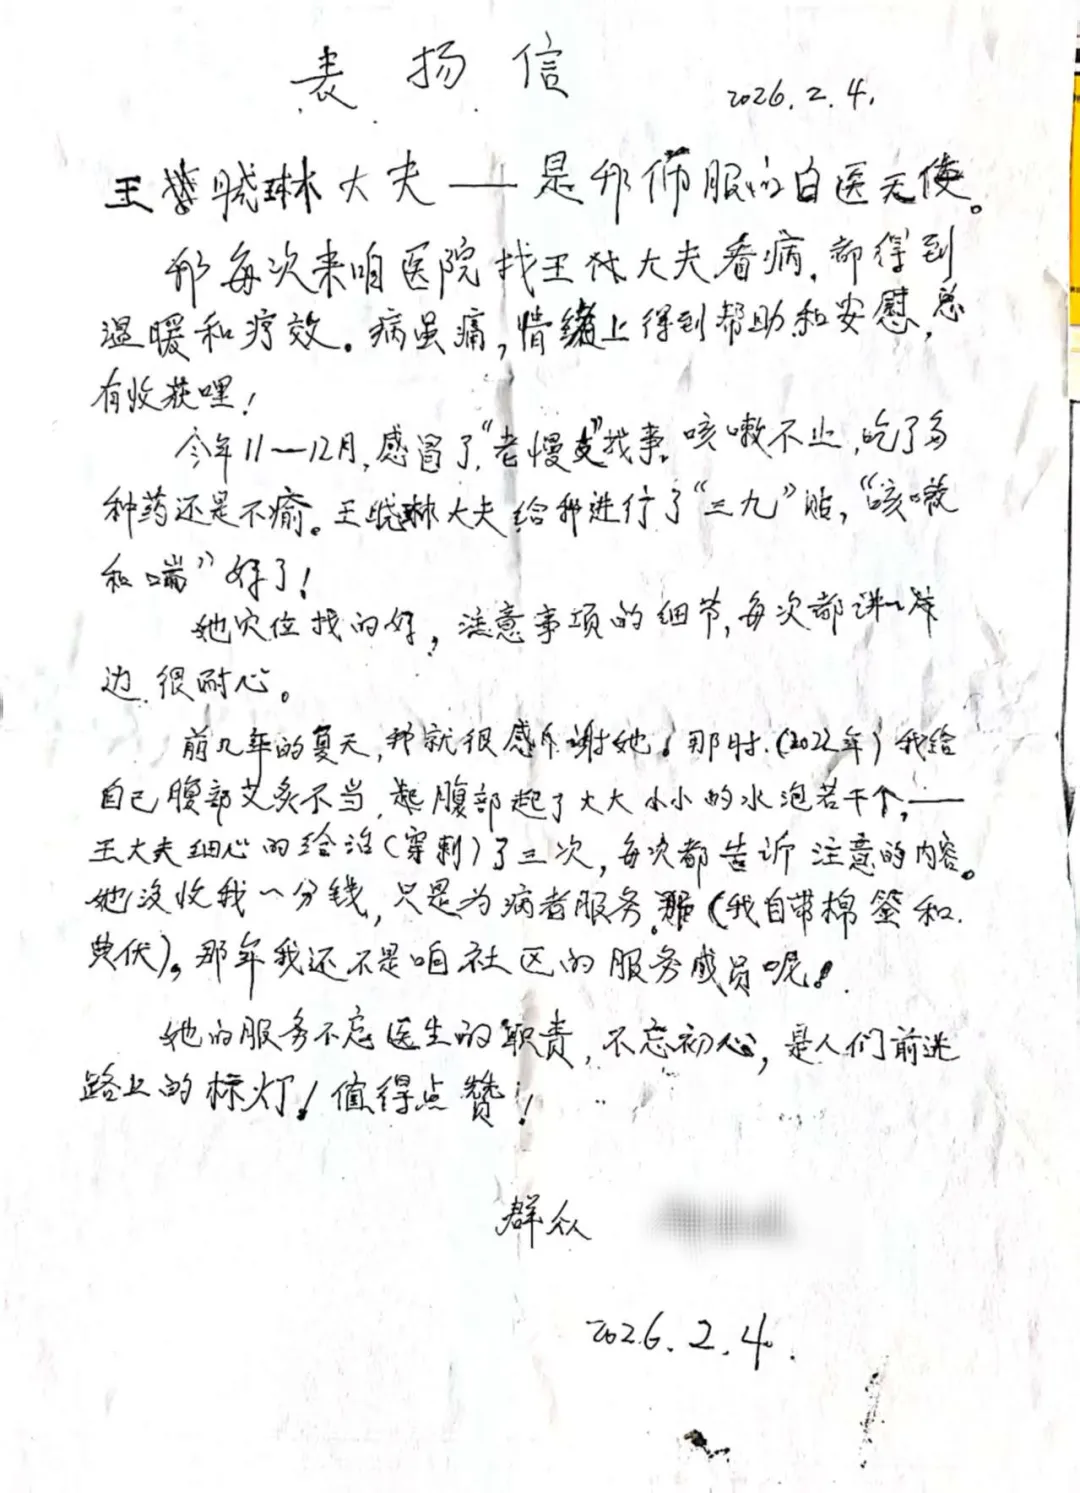 表扬信
2026.2.4.
王晓琳大夫——是我佩服的白医天使。
我每次来咱医院找王大夫看病,都得到
温暖和疗效。病虽痛,情绪上得到帮助和安慰,总
有收获哩!
今年11—12月,感冒了,“老慢支”找事,咳嗽不止,吃了多
种药还是不愈。王晓琳大夫给我进行了“三九”贴,“咳嗽
和喘”好了!
她穴位找的好,注意事项的细节,每次都讲一
边,很耐心。
前几年的夏天,我就很感谢她!那时(2022年)我给
自己腹部艾炙不当,腹部起了大大小小的水泡若干个,——
王大夫细心的给治(穿刺)了三次,每次都告诉注意的内容。
她没收我一分钱,只是为病者服务。(我自带棉签和
典伏)。那年我还不是咱社区的服务成员呢!
她的服务不忘医生的职责,不忘初心,是人们前进
路上的标灯!值得点赞!
群众
2026.2.4.